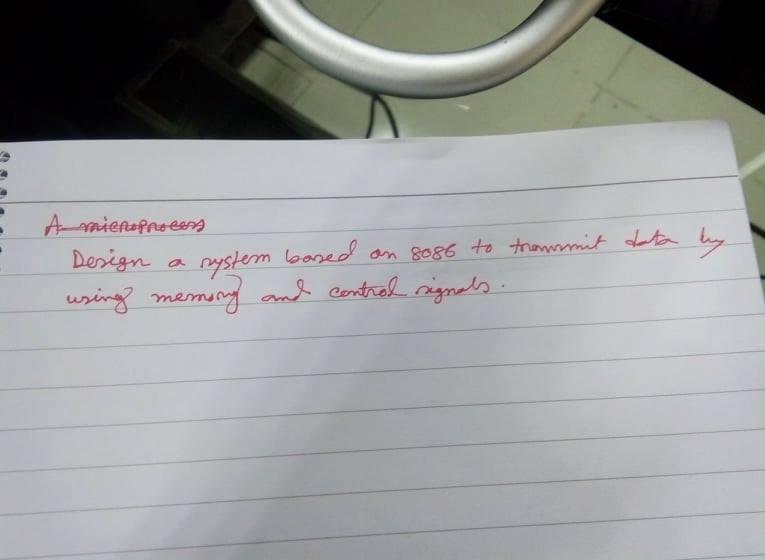 A microprocess
Design a system based on 8086 to transmit data by
using memory and control signals.